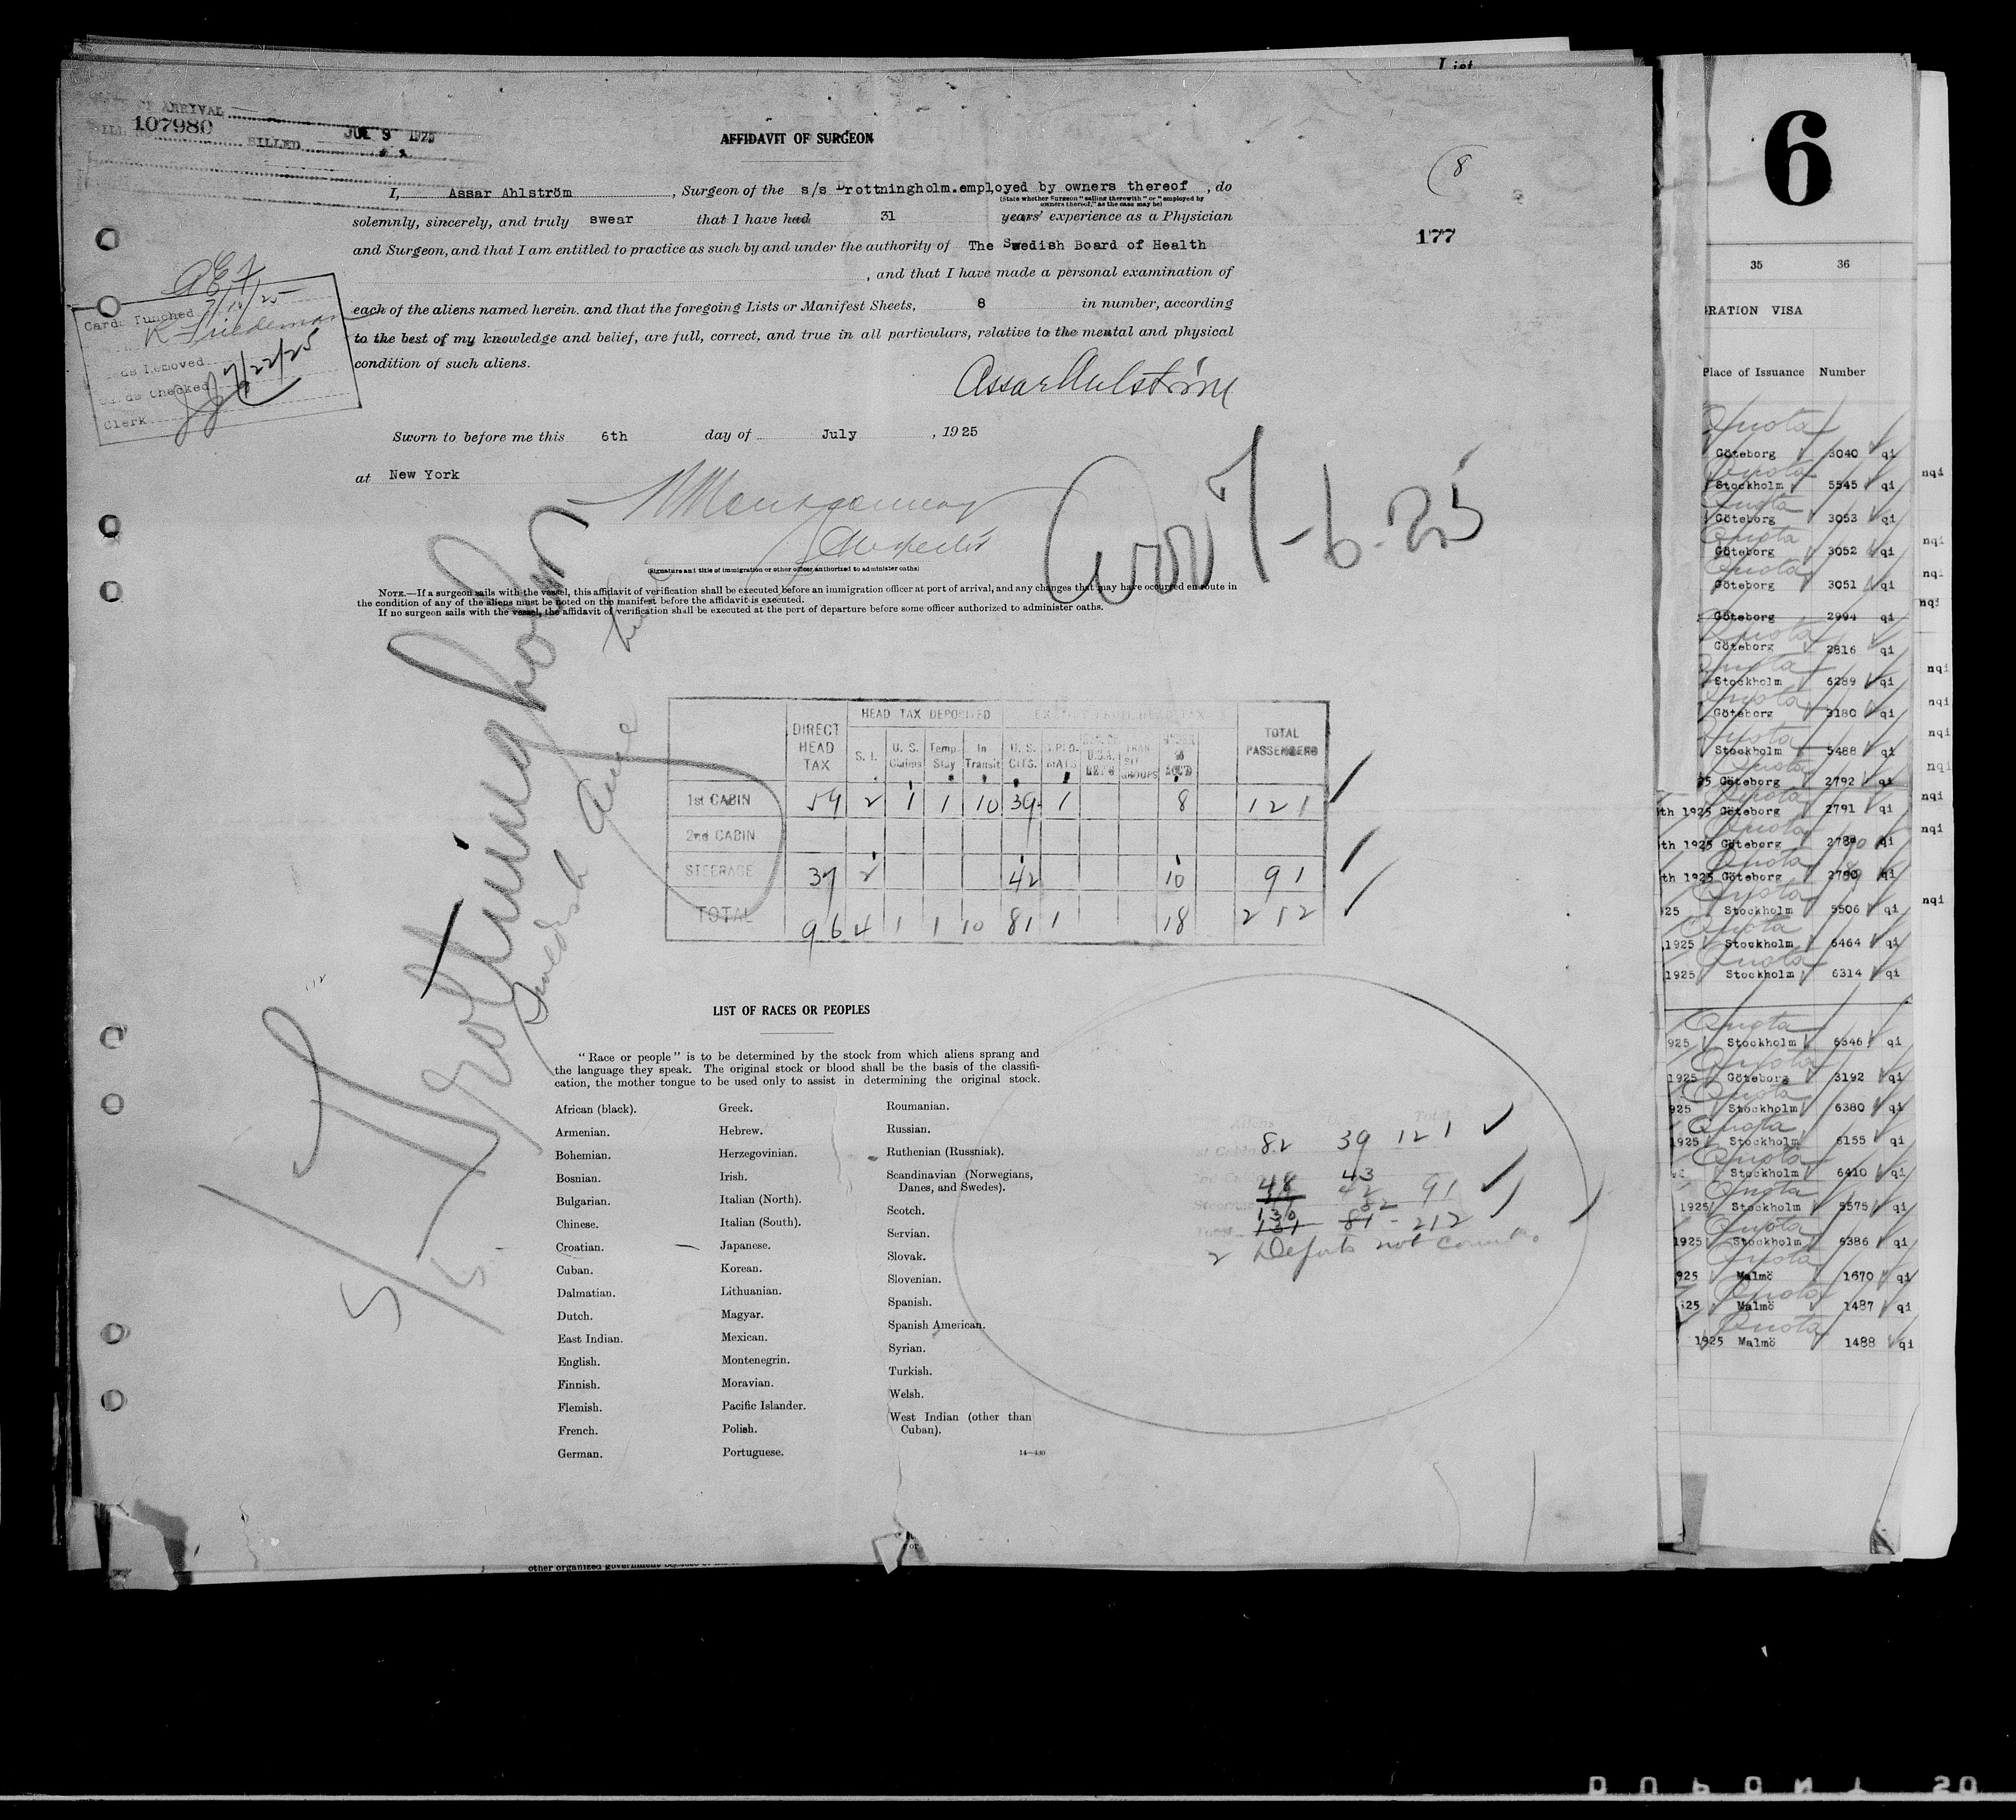 List
OF ARRIVAL
107980
BILLED JUL 9 1925
AFFIDAVIT OF SURGEON
8
I, Assar Ahlström, Surgeon of the s/s Drottningholm.employed by owners thereof, do
(State whether Surgeon "sailing therewith" or "employed by
owners thereof," as the case may be)
solemnly, sincerely, and truly swear that I have had 31 years' experience as a Physician
and Surgeon, and that I am entitled to practice as such by and under the authority of The Swedish Board of Health
, and that I have made a personal examination of
each of the aliens named herein. and that the foregoing Lists or Manifest Sheets, 8 in number, according
to the best of my knowledge and belief, are full, correct, and true in all particulars, relative to the mental and physical
condition of such aliens.
177
Cards Punched 7/15/25
K Friedeman
Removed
Checked 7/22/25
Clerk
Assar Ahlström
Sworn to before me this 6th day of July, 1925
at New York
Inspector
Arr 7-6-25
(Signature and title of immigration or other officer authorized to administer oaths)
NOTE.—If a surgeon sails with the vessel, this affidavit of verification shall be executed before an immigration officer at port of arrival, and any changes that may have occurred en route in
the condition of any of the aliens must be noted on the manifest before the affidavit is executed.
If no surgeon sails with the vessel, the affidavit of verification shall be executed at the port of departure before some officer authorized to administer oaths.
S/S Drottningholm
Swedish Amer Line
DIRECT HEAD TAX HEAD TAX DEPOSITED EXEMPT FROM HEAD TAX TOTAL PASSENGERS
S. I. U. S. Claims Temp. Stay In Transit U. S. CITS. DIPLOMATS TRANSIT GROUPS
1st CABIN 59 2 1 1 10 39 1 8 121
2nd CABIN
STEERAGE 37 2 42 10 91
TOTAL 96 4 1 1 10 81 1 18 212
LIST OF RACES OR PEOPLES
"Race or people" is to be determined by the stock from which aliens sprang and
the language they speak. The original stock or blood shall be the basis of the classifi-
cation, the mother tongue to be used only to assist in determining the original stock.
African (black).
Armenian.
Bohemian.
Bosnian.
Bulgarian.
Chinese.
Croatian.
Cuban.
Dalmatian.
Dutch.
East Indian.
English.
Finnish.
Flemish.
French.
German.
Greek.
Hebrew.
Herzegovinian.
Irish.
Italian (North).
Italian (South).
Japanese.
Korean.
Lithuanian.
Magyar.
Mexican.
Montenegrin.
Moravian.
Pacific Islander.
Polish.
Portuguese.
Roumanian.
Russian.
Ruthenian (Russniak).
Scandinavian (Norwegians,
Danes, and Swedes).
Scotch.
Servian.
Slovak.
Slovenian.
Spanish.
Spanish American.
Syrian.
Turkish.
Welsh.
West Indian (other than
Cuban).
14—430
Aliens Total
82 39 121
48 43
Steerage 42 91
130 82
Total 131 81 - 212
2 Deports not count.
other organized government
6
35 36
RATION VISA
Place of Issuance Number
Quota
Göteborg 3040 qi
Quota
Stockholm 5545 qi nqi
Quota
Göteborg 3053 qi
Quota
Göteborg 3052 qi nqi
Quota
Göteborg 3051 qi nqi
Göteborg 2994 qi nqi
Quota
Göteborg 2816 qi
Quota
Stockholm 6289 qi nqi
Quota
Göteborg 3180 qi nqi
Quota
Stockholm 5488 qi nqi
Quota
25 Göteborg 2792 qi nqi
Quota
th 1925 Göteborg 2791 qi nqi
Quota
th 1925 Göteborg qi nqi
Quota
th 1925 Göteborg qi
Quota
925 Stockholm 5506 qi nqi
Quota
1925 Stockholm 6464 qi
Quota
1925 Stockholm 6314 qi
Quota
925 Stockholm 6346 qi
Quota
1925 Göteborg 3192 qi
Quota
925 Stockholm 6380 qi
Quota
1925 Stockholm 6155 qi
Quota
Stockholm 6410 qi
Quota
1925 Stockholm 5575 qi
Quota
1925 Stockholm 6386 qi
Quota
925 Malmö 1670 qi
Quota
925 Malmö 1487 qi
Quota
1925 Malmö 1488 qi
20